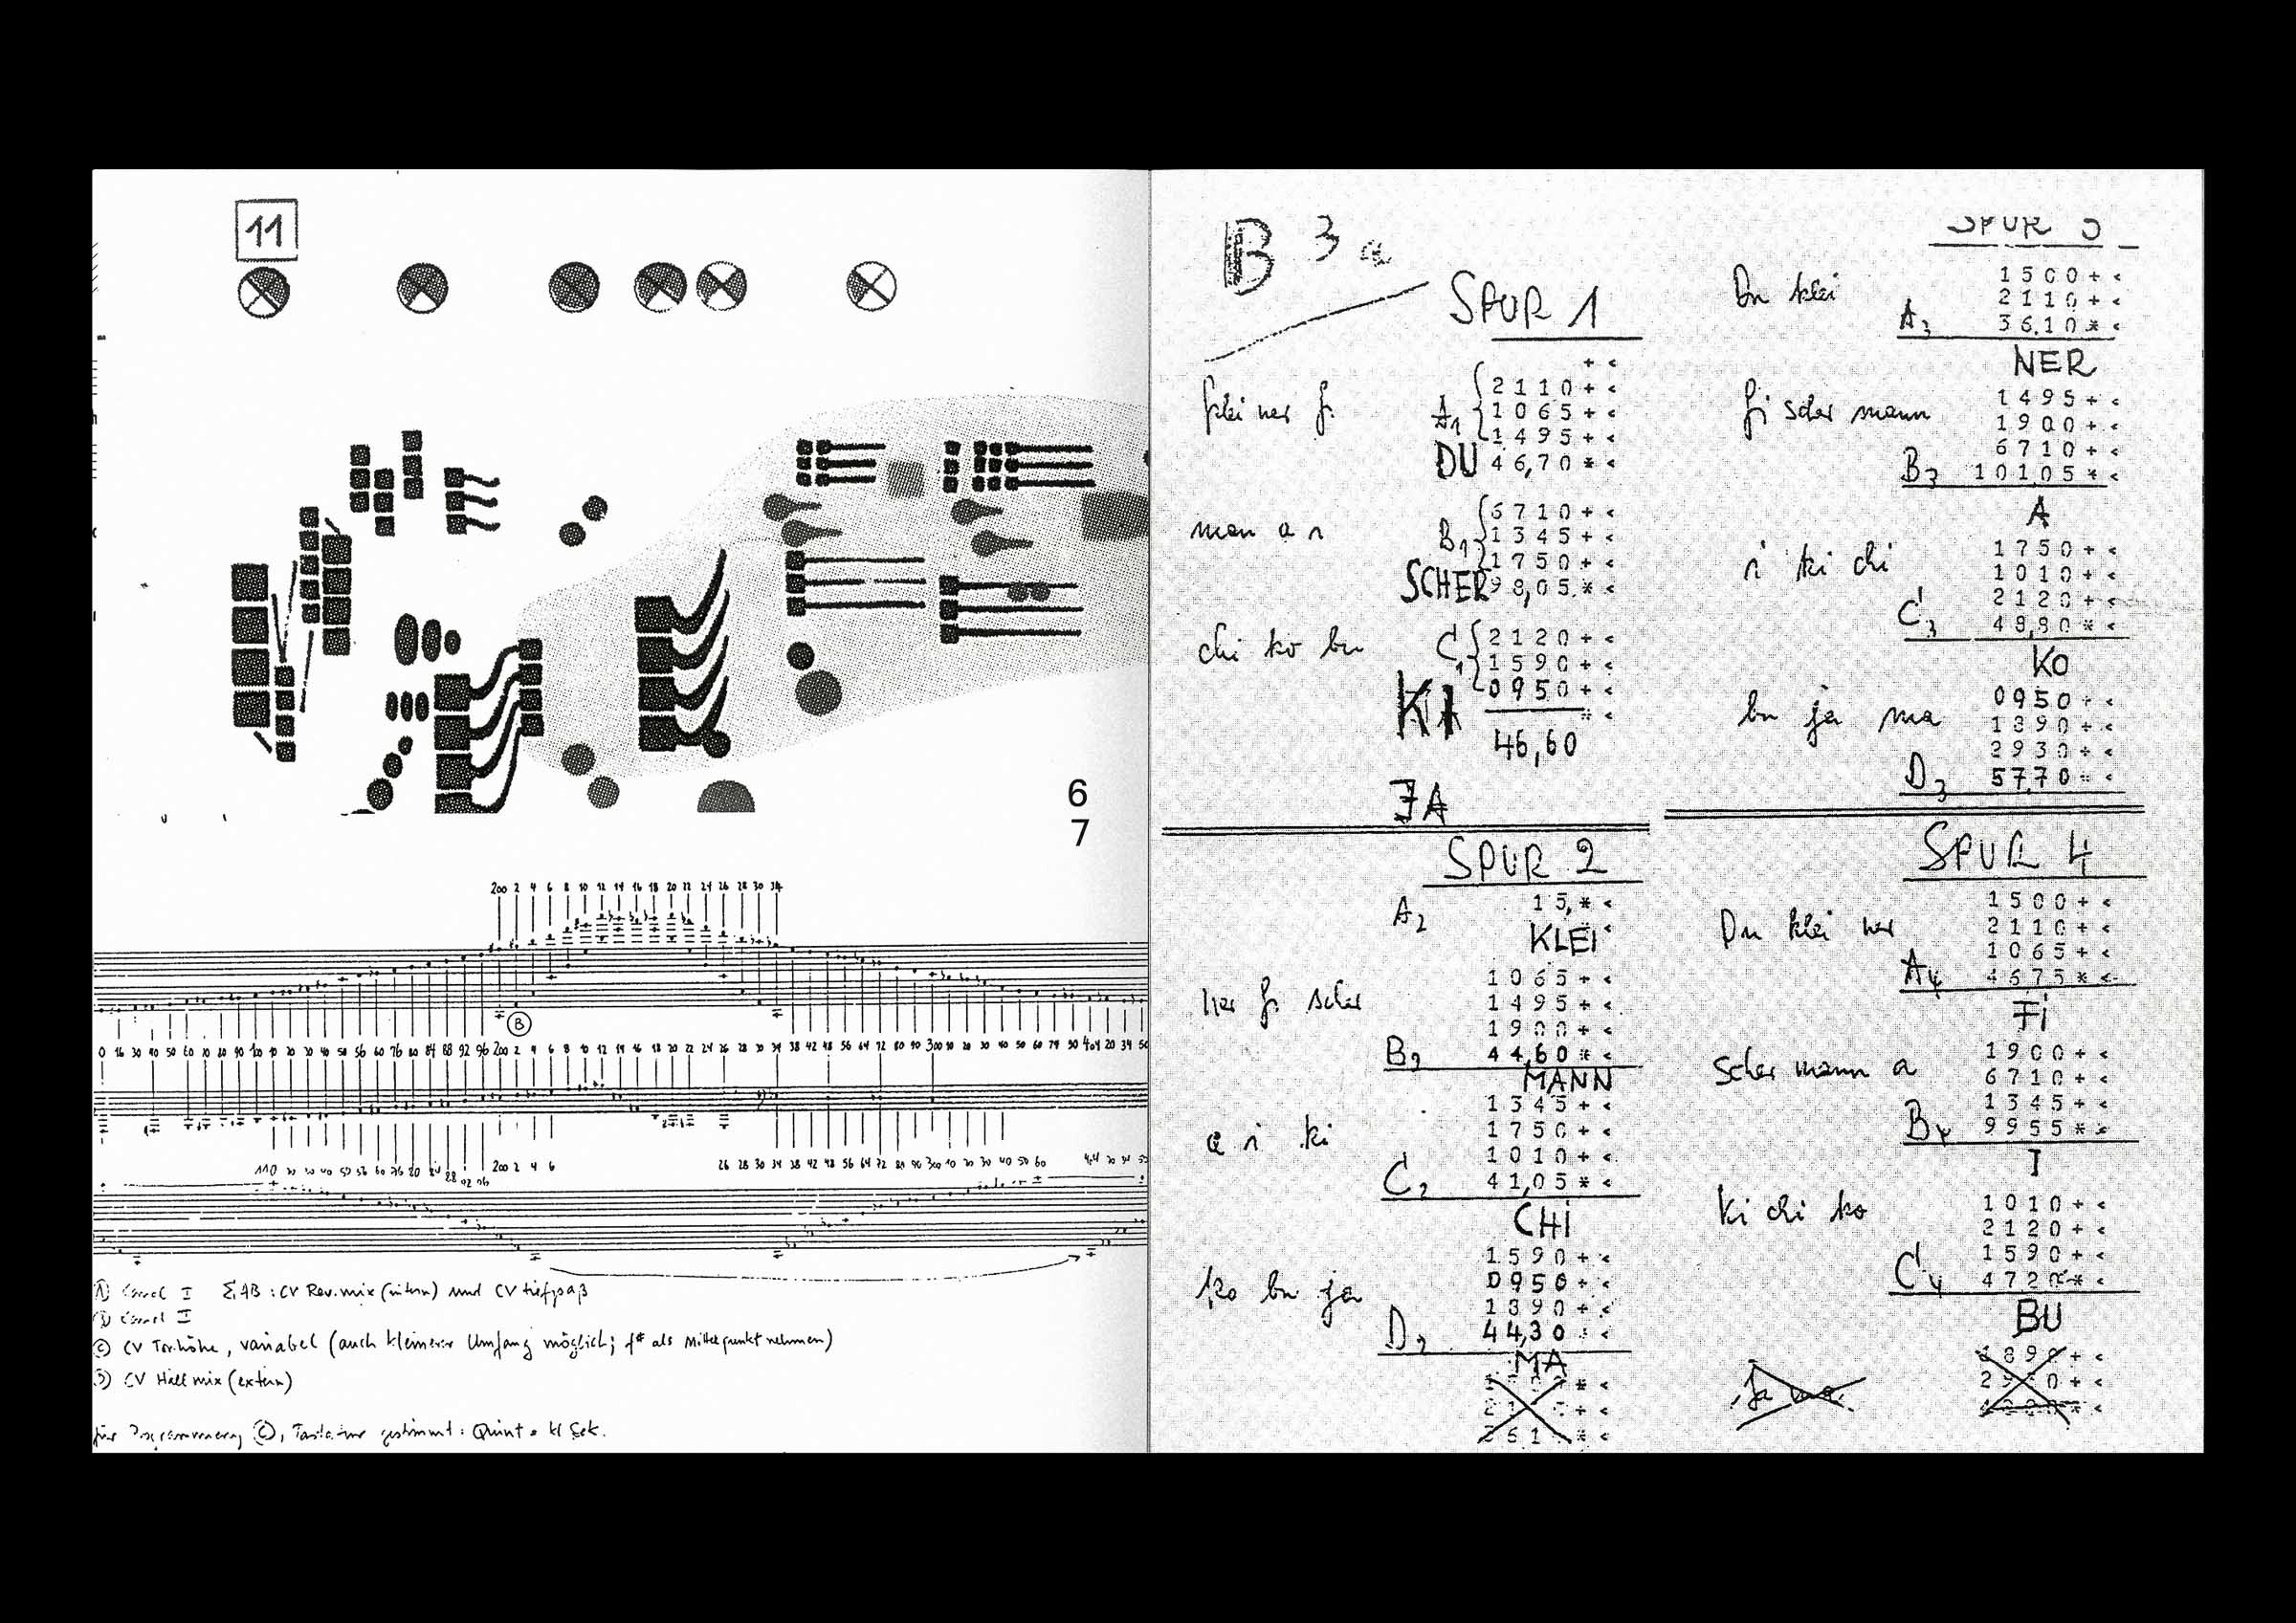 11
6
7
200 2 4 6 8 10 12 14 16 18 20 22 24 26 28 30 34
B
0 16 30 40 50 60 70 80 90 100 10 20 30 40 50 56 60 76 80 84 88 92 96 200 2 4 6 8 10 12 14 16 18 20 22 24 26 28 30 34 38 42 48 56 64 72 80 90 300 10 20 30 40 50 60 70 90 404 20 34 50
110 20 30 40 50 56 60 76 80 84 88 92 96 200 2 4 6
26 28 30 34 38 42 48 56 64 72 80 90 300 10 20 30 40 50 60
I Σ AB : CV Rev. mix (intern) und CV tiefpaß
II
C CV Tonhöhe, variabel (auch kleinerer Umfang möglich; f# als Mittelpunkt nehmen)
CV Hallmix (extern)
für Programmierung C, Tastatur gestimmt : Quint = kl Sek.
B 3 a
SPUR 1
+ <
klei ner fi
A1
2110 + <
1065 + <
1495 + <
DU 46,70 * <
man a ri
B1
6710 + <
1345 + <
1750 + <
SCHER 98,05 * <
chi ko bu
C1
2120 + <
1590 + <
0950 + <
KI
* <
46,60
JA
SPUR 2
A2 15, * <
KLEI
ner fi scher
1065 + <
1495 + <
1900 + <
B2 44,60 * <
MANN
a ri ki
1345 + <
1750 + <
1010 + <
C2 41,05 * <
CHI
ko bu ja
1590 + <
0950 + <
1890 + <
D2 44,30 * <
MA
SPUR 3
Du klei
1500 + <
2110 + <
A3 36,10 * <
NER
fi scher mann
1495 + <
1900 + <
6710 + <
B3 101,05 * <
A
ri ki chi
1750 + <
1010 + <
2120 + <
C3 48,80 * <
KO
bu ja ma
0950 + <
1890 + <
2930 + <
D3 57,70 * <
SPUR 4
Du klei ner
1500 + <
2110 + <
1065 + <
A4 4675 * <
FI
scher mann a
1900 + <
6710 + <
1345 + <
B4 9955 * <
I
ki chi ko
1010 + <
2120 + <
1590 + <
C4 4720 * <
BU
1890 + <
ja ma